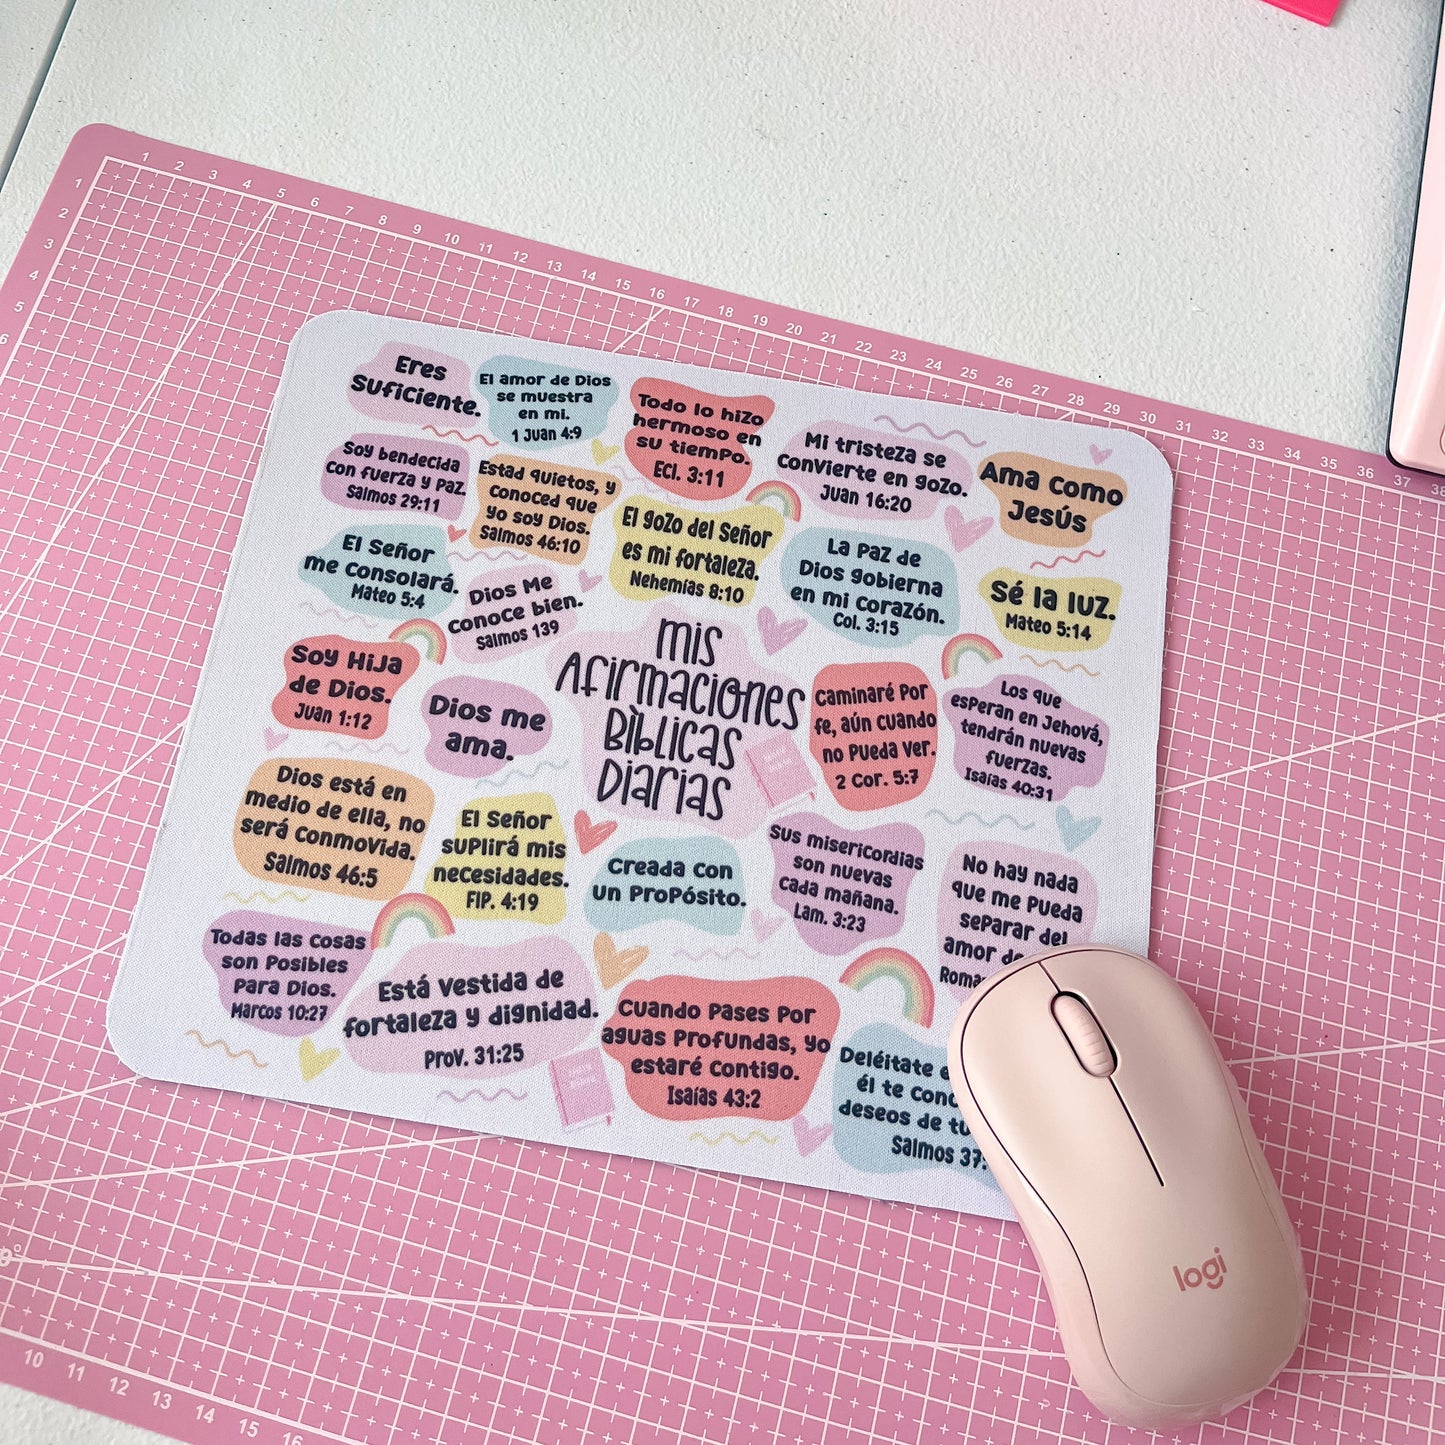 Eres
suficiente.
El amor de Dios
se muestra
en mi.
1 Juan 4:9
Todo lo hizo
hermoso en
su tiempo.
Ecl. 3:11
Mi tristeza se
convierte en gozo.
Juan 16:20
Ama como
Jesús
Soy bendecida
con fuerza y paz.
Salmos 29:11
Estad quietos, y
conoced que
yo soy Dios.
Salmos 46:10
El gozo del Señor
es mi fortaleza.
Nehemías 8:10
La paz de
Dios gobierna
en mi corazón.
Col. 3:15
Sé la luz.
Mateo 5:14
El Señor
me consolará.
Mateo 5:4
Dios me
conoce bien.
Salmos 139
Soy hija
de Dios.
Juan 1:12
Dios me
ama.
Mis
Afirmaciones
Bìblicas
Diarias
Caminaré por
fe, aún cuando
no pueda ver.
2 Cor. 5:7
Los que
esperan en Jehová,
tendrán nuevas
fuerzas.
Isaías 40:31
Dios está en
medio de ella, no
será conmovida.
Salmos 46:5
El Señor
suplirá mis
necesidades.
FIP. 4:19
Creada con
un propósito.
Sus misericordias
son nuevas
cada mañana.
Lam. 3:23
No hay nada
que me pueda
separar del
amor
Todas las cosas
son posibles
para Dios.
Marcos 10:27
Está vestida de
fortaleza y dignidad.
Prov. 31:25
Cuando pases por
aguas profundas, yo
estaré contigo.
Isaías 43:2
Deléitate
él te
deseos de
Salmos 37:
logi
1 2 3 4 5 6 7 8 9 10 11 12 13 14 15 16 17 18 19 20 21 22 23 24 25 26 27 28 29 30 31 32 33 34 35 36 37 38
1
2
3
4
5
6
10 11 12 13 14 15 16